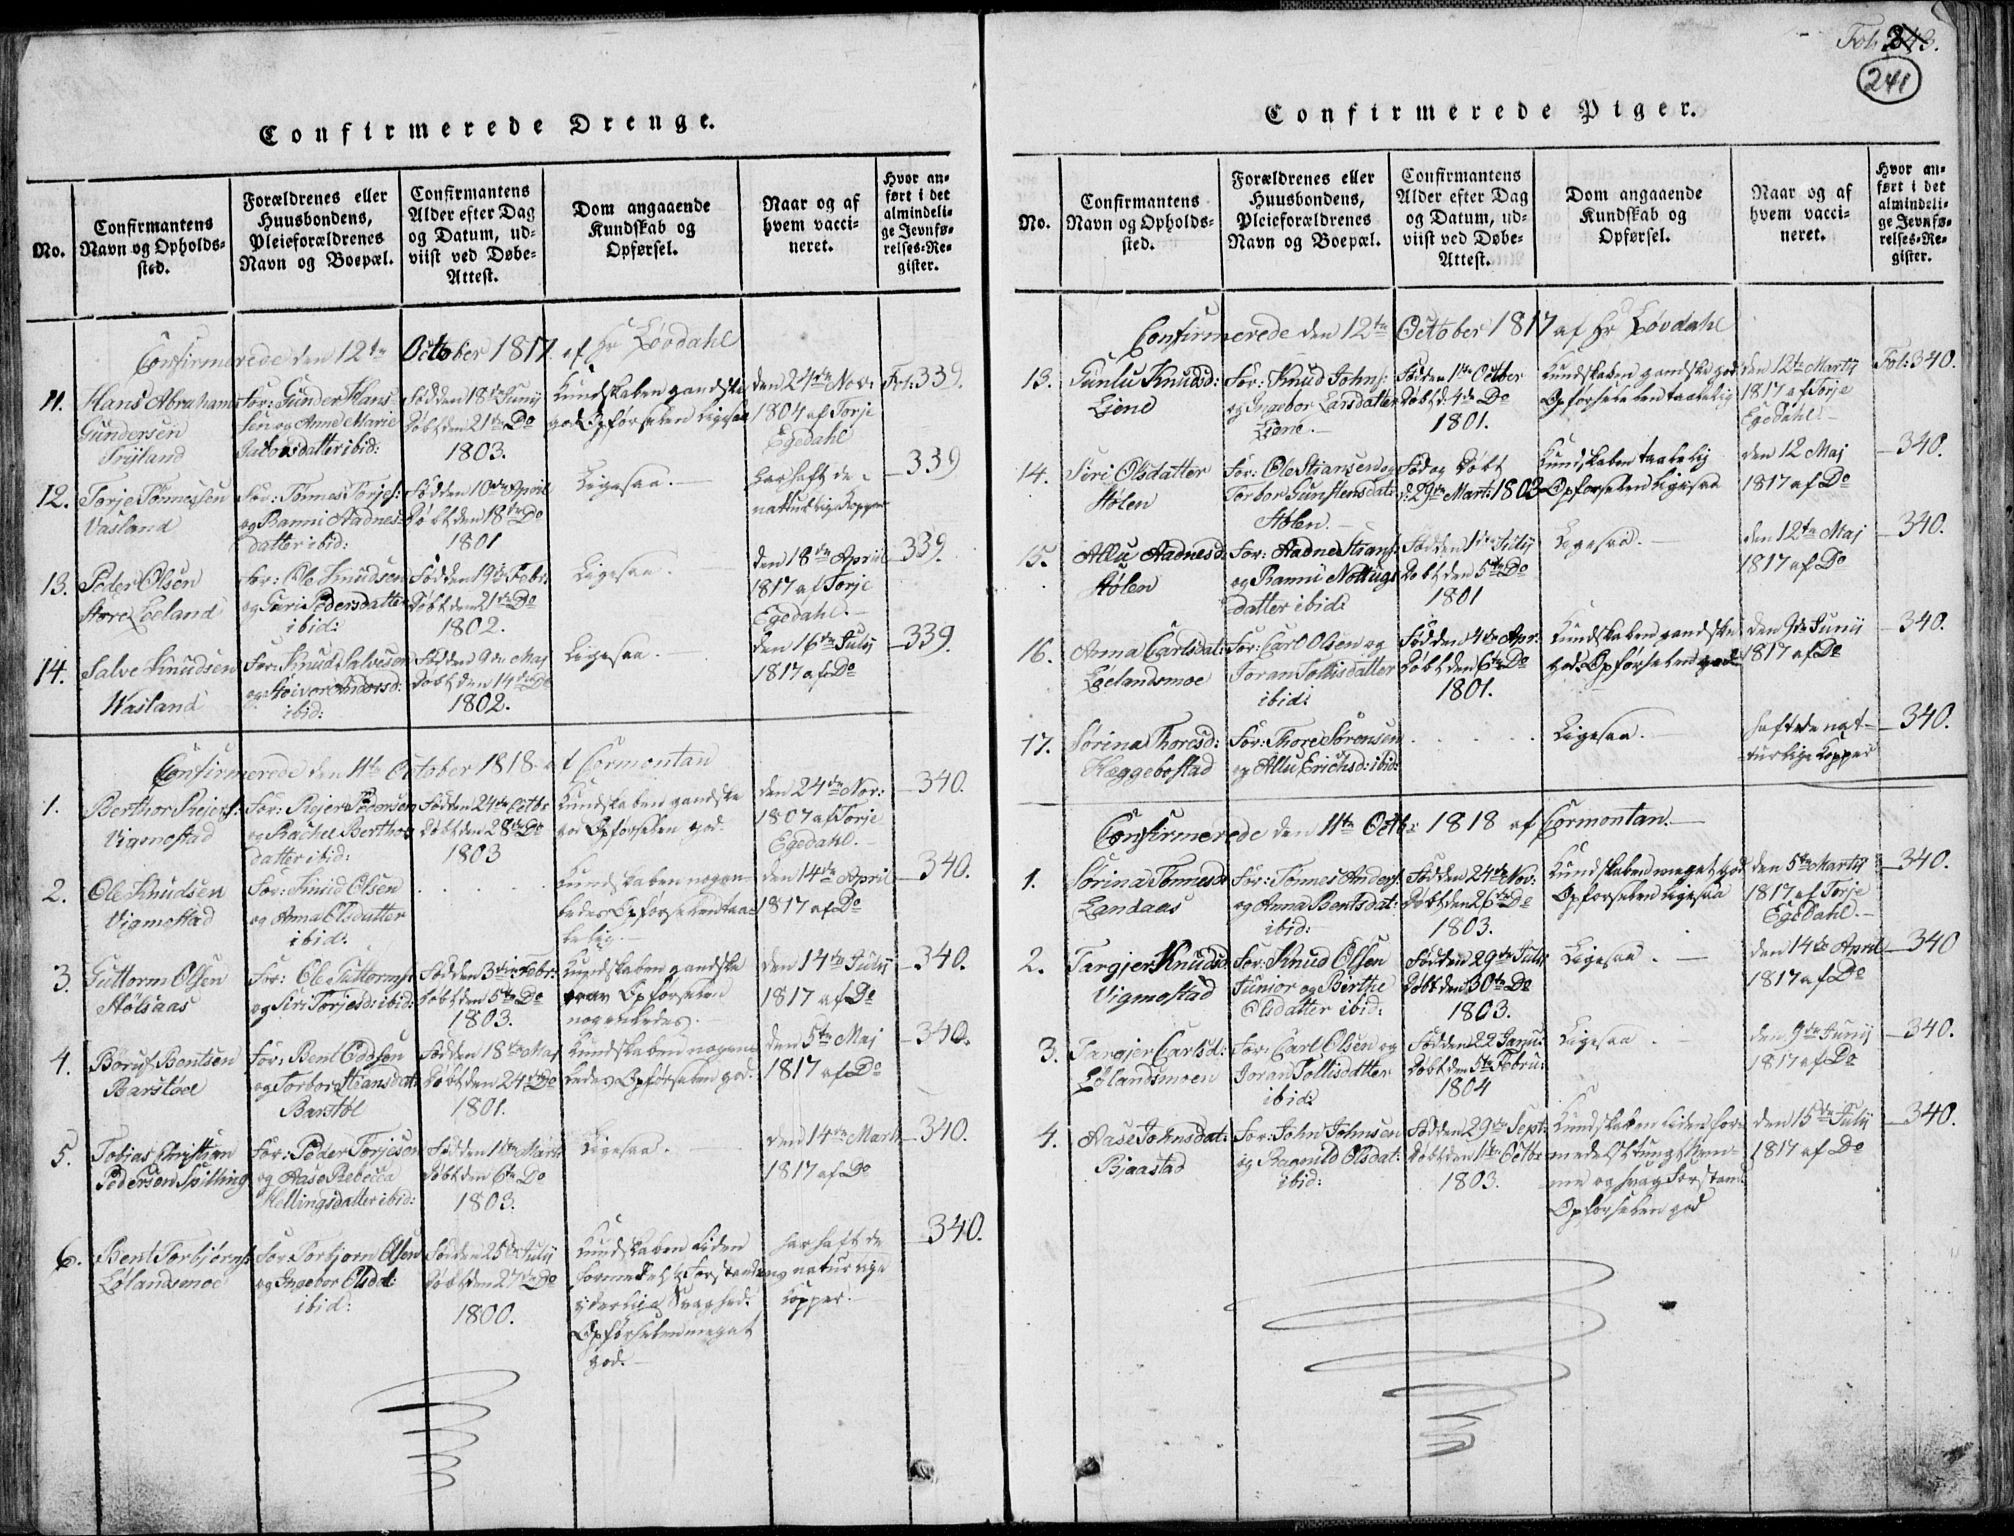 Fol: 243.
241
Confirmerede Drenge.
No.
Confirmantens
Navn og Opholds-
sted.
Forældrenes eller
Huusbondens,
Pleieforældrenes
Navn og Boepæl.
Confirmantens
Alder efter Dag
og Datum, ud-
viist ved Døbe-
Attest.
Dom angaaende
Kundskab og
Opførsel.
Naar og af
hvem vacci-
neret.
Hvor an-
ført i det
almindeli-
ge Jevnfø-
relses-Re-
gister.
Confirmerede den 12te October 1817 af Hr Løvdahl
11.
Hans Abraham
Gundersen
Trÿland
For: Gunder Hans
sen og Anne Marie
Jacobsdatter ibid:
Fød den 18de Junÿ
Døbt den 21de Do
1803.
Kundskaben gandske
god Opførselen Ligesaa
den 24de Nov:
1804 af Torje
Egedahl
Fol: 339.
12.
Torje Tönnessen
Vasland
For: Tönnes Torjes:
og Ranni Aadnes
datter ibid:
Fød den 10de April
Døbt den 18de Do
1801
Ligesaa.
har haft de
naturlige Kopper
339
13.
Peder Olsen
Store Loeland
For: Ole Knudsen
og Guri Pedersdatter
ibid:
Fød den 19de Febr:
Døbt den 21de Do
1802.
Ligesaa.
den 18de April
1817 af Torje
Egedahl.
339.
14.
Salve Knudsen
Wasland
For: Knud Salvesen
og Seivor Andersd:
ibid:
Fød den 9de Maj
Døbt den 14de Do
1802.
Ligesaa.
den 16de Julÿ
1817 af Do
339.
Confirmerede den 11te October 1818 af Cormontan
1.
Berthor Reiers:
Vigmostad
For: Rejer Pedersen
og Rachel Berthor
datter ibid:
Fød den 24de Octbr
Døbt den 28de Do
1803
Kundskaben gandske
god Opførselen god.
den 24de Nov:
1807 af Torje
Egedahl.
340.
2.
Ole Knudsen
Vigmostad
For: Knud Olsen
og Anna Olsdatter
ibid:
Kundskaben nogen-
ledes Opførselen taa-
lelig.
den 14de April
1817 af Do
340.
3.
Guttorm Olsen
Stølsaas
For: Ole Guttorms:
og Siri Torjesd: ibid:
Fød den 3die Febr:
Døbt den 5te Do
1803.
Kundskaben gandske
svag Opførselen
nogenledes.
den 14de Julÿ
1817 af Do
340.
4.
Boruf Bentsen
Barstøel
For: Bent Oddsen
og Torbor Stiansdat:
Barstøl
Fød den 18de Maj
Døbt den 24de Do
1801.
Kundskaben nogen-
ledes Opførselen god.
den 5te Maj
1817 af Do
340.
5.
Tobias Christian
Pedersen Spilling
For: Peder Torjesen
og Aase Rebecca
Hellingsdatter ibid:
Fød den 1de Marti
Døbt den 6te Do
1803.
Ligesaa.
den 14de Marti
1817 af Do
340.
6.
Bent Torbjørns:
Lølandsmoe
For Torbjørn Olsen
og Ingebor Olsdat:
ibid:
Fød den 25de Julÿ
Døbt den 27de Do
1800.
Kundskaben Liden
formedelst Forstandens
Svaghed.
Opførselen meget
god.
har haft de
naturlige
Kopper.
340.
Confirmerede Piger.
No.
Confirmantens
Navn og Opholds-
sted.
Forældrenes eller
Huusbondens,
Pleieforældrenes
Navn og Boepæl.
Confirmantens
Alder efter Dag
og Datum, ud-
viist ved Døbe-
Attest.
Dom angaaende
Kundskab og
Opførsel.
Naar og af
hvem vacci-
neret.
Hvor an-
ført i det
almindeli-
ge Jevnfø-
relses-Re-
gister.
Confirmerede den 12te October 1817 af Hr Løvdahl
13.
Gunlu Knudsd:
Liene
For: Knud Johns:
og Ingebor Larsdatter
Liene.
Fød den 1de Octber
Døbt d: 4de Do
1801.
Kundskaben gandske god
Opførselen taalelig
den 12te Martÿ
1817 af Torje
Egedahl.
Fol: 340.
14.
Siri Olsdatter
Stölen
For: Ole Stiansen og
Torbor Gunstensdat:
Stølen.
Fød og Døbt
d: 29de Mart: 1802
Kundskaben taalelig
Opførselen Ligesaa
den 12 Maj
1817 af Do
340.
15.
Allu Aadnesd:
Stølen
For: Aadne Stians:
og Ranni Nottugs
datter ibid:
Fød den 1de Julÿ
Døbt den 5te Do
1801
Ligesaa.
den 12te Maj
1817 af Do
340.
16.
Anna Carlsdat:
Lølandsmoe
For: Carl Olsen og
Joran Tollisdatter
ibid:
Fød den 4de Apr:
Døbt den 6te Do
1801.
Kundskaben gandske
god Opførselen god
den 9de Junÿ
1817 af Do
340.
17.
Sørina Thoresd:
Hæggebostad
For: Thore Sörensen
og Allu Erichsd: ibid:
Ligesaa.
haft de nat-
turlige Kopper
340.
Confirmerede den 11te Octbr: 1818 af Cormontan.
1.
Sörina Tönnesd:
Landaas
For: Tönnes Anders:
og Anna Bentsdat:
ibid:
Fød den 24de Nov:
Døbt den 26de Do
1803.
Kundskaben meget god
Opførselen Ligesaa
den 5te Martÿ
1817 af Torje
Egedahl.
340.
2.
Targjer Knudsd:
Vigmostad
For: Knud Olsen
Junior og Birthe
Olsdatter ibid:
Fød den 29de Julÿ
Døbt den 30te Do
1803.
Ligesaa.
den 14de April
1817 af Do
340
3.
Targjer Carlsd:
Lølandsmoen
For: Carl Olsen og
Joran Tollisdatter
ibid:
Fød den 22 Janu:
Døbt den 5te Febru:
1804
Ligesaa.
den 9de Junÿ
1817 af Do
340.
4.
Aase Johnsdat:
Bjaastad
For: John Johnsen
og Ragnild Olsdat:
ibid:
Fød den 29de Sept:
Døbt den 1de Octbr
1803.
Kundskaben liden for-
medelst tungt Nem-
me og svag Forstand
Opførselen god
den 15de Julÿ
1817 af Do
340.